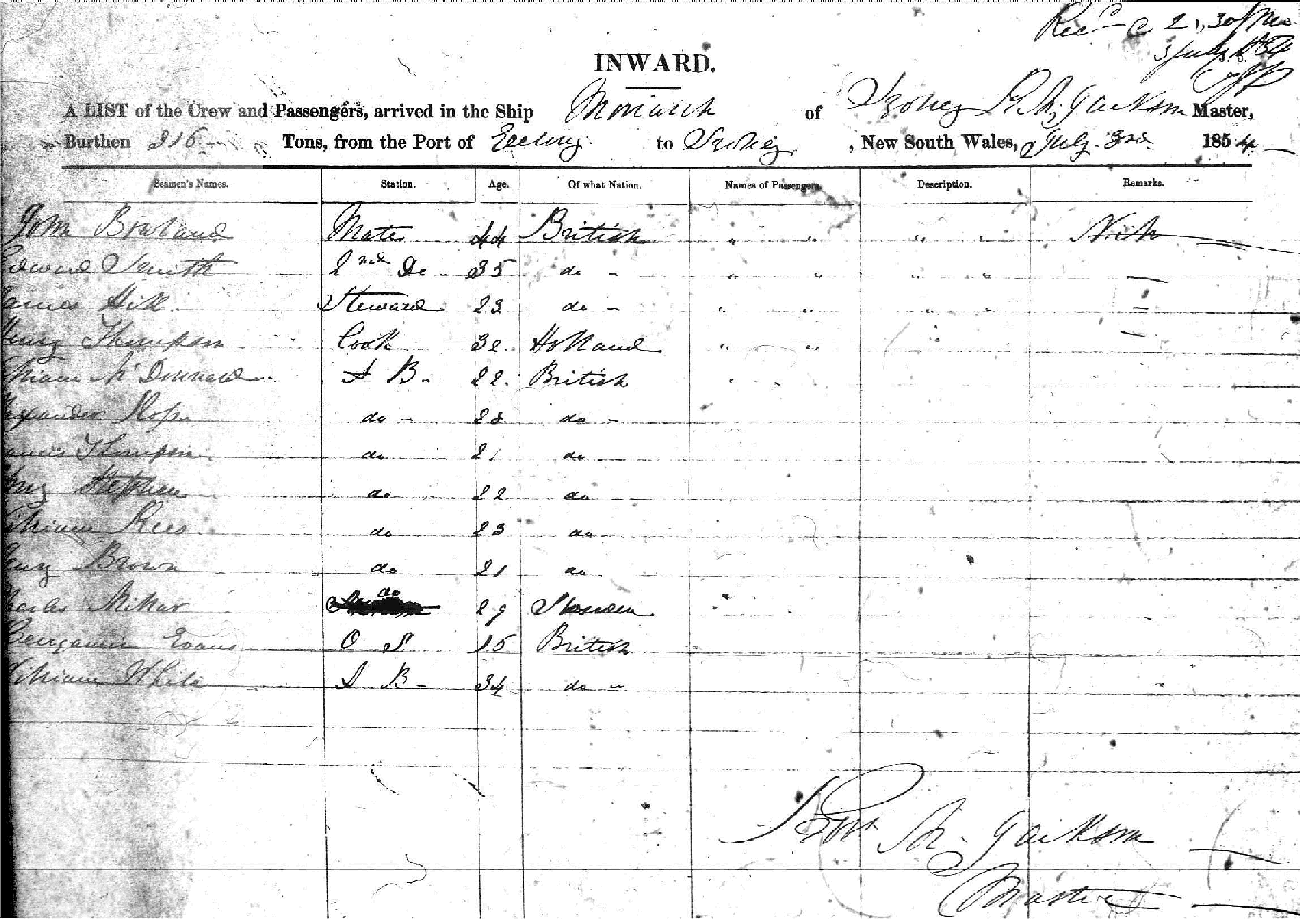 Rec'd @ 2,30 pm
3 July 1854
INWARD.
A LIST of the Crew and Passengers, arrived in the Ship Monarch of Sydney R. M. Jackson Master,
Burthen 316 Tons, from the Port of to Sydney, New South Wales, July 3rd 1854
Seamen's Names. Station. Age. Of what Nation. Names of Passengers. Description. Remarks.
John Mate 44 British " " " "
Edward Smith 2nd Do 35 do - " " " "
James Hill Steward 23 do - " " " "
Henry Thompson Cook 32 Holland " "
William McDonnald A B. 22. British " "
Alexander Ross do - 23 do -
James Thompson do 21 do -
Henry Stephen do 22 do -
William Rees do 23 do -
Henry Brown do 21 do -
Charles do 29
Benjamin Evans O S 15 British
William White A B - 34 do -
Robt M. Jackson
Master